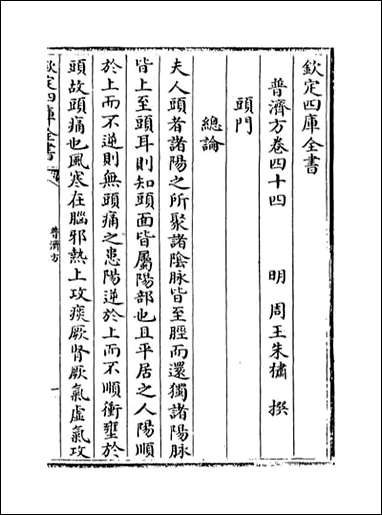 欽定四庫全書
普濟方卷四十四
明 周王朱橚 撰
頭門
總論
夫人頭者諸陽之所聚諸陰脉皆至脛而還獨諸陽脉
皆上至頭耳則知頭面皆屬陽部也且平居之人陽順
於上而不逆則無頭痛之患陽逆於上而不順衝壅於
頭故頭痛也風寒在腦邪熱上攻痰厥腎厥氣虛氣攻
欽定四庫全書
普濟方
一